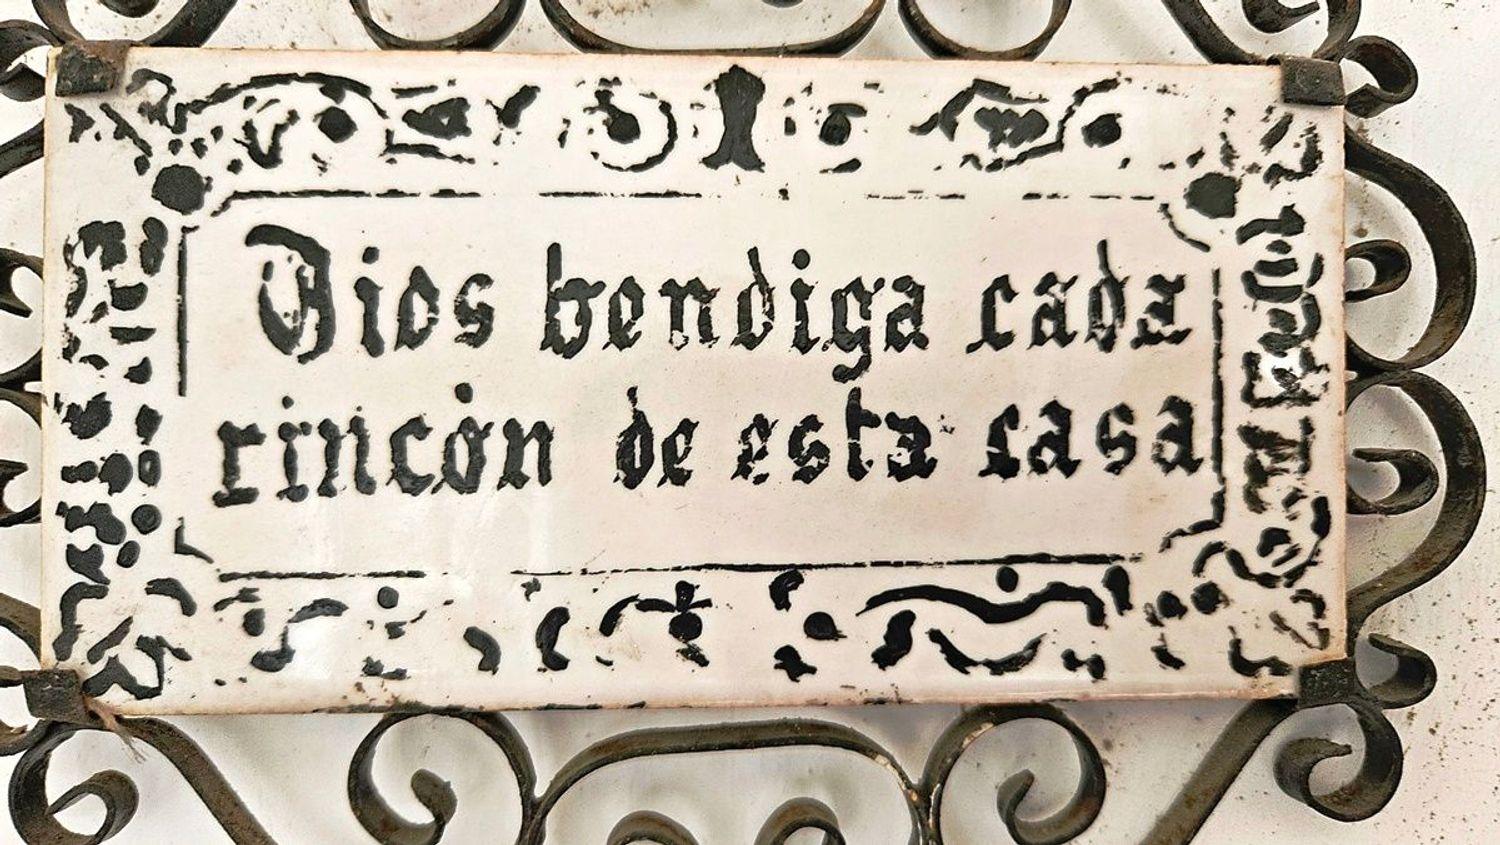 Dios bendiga cada
rincón de esta casa